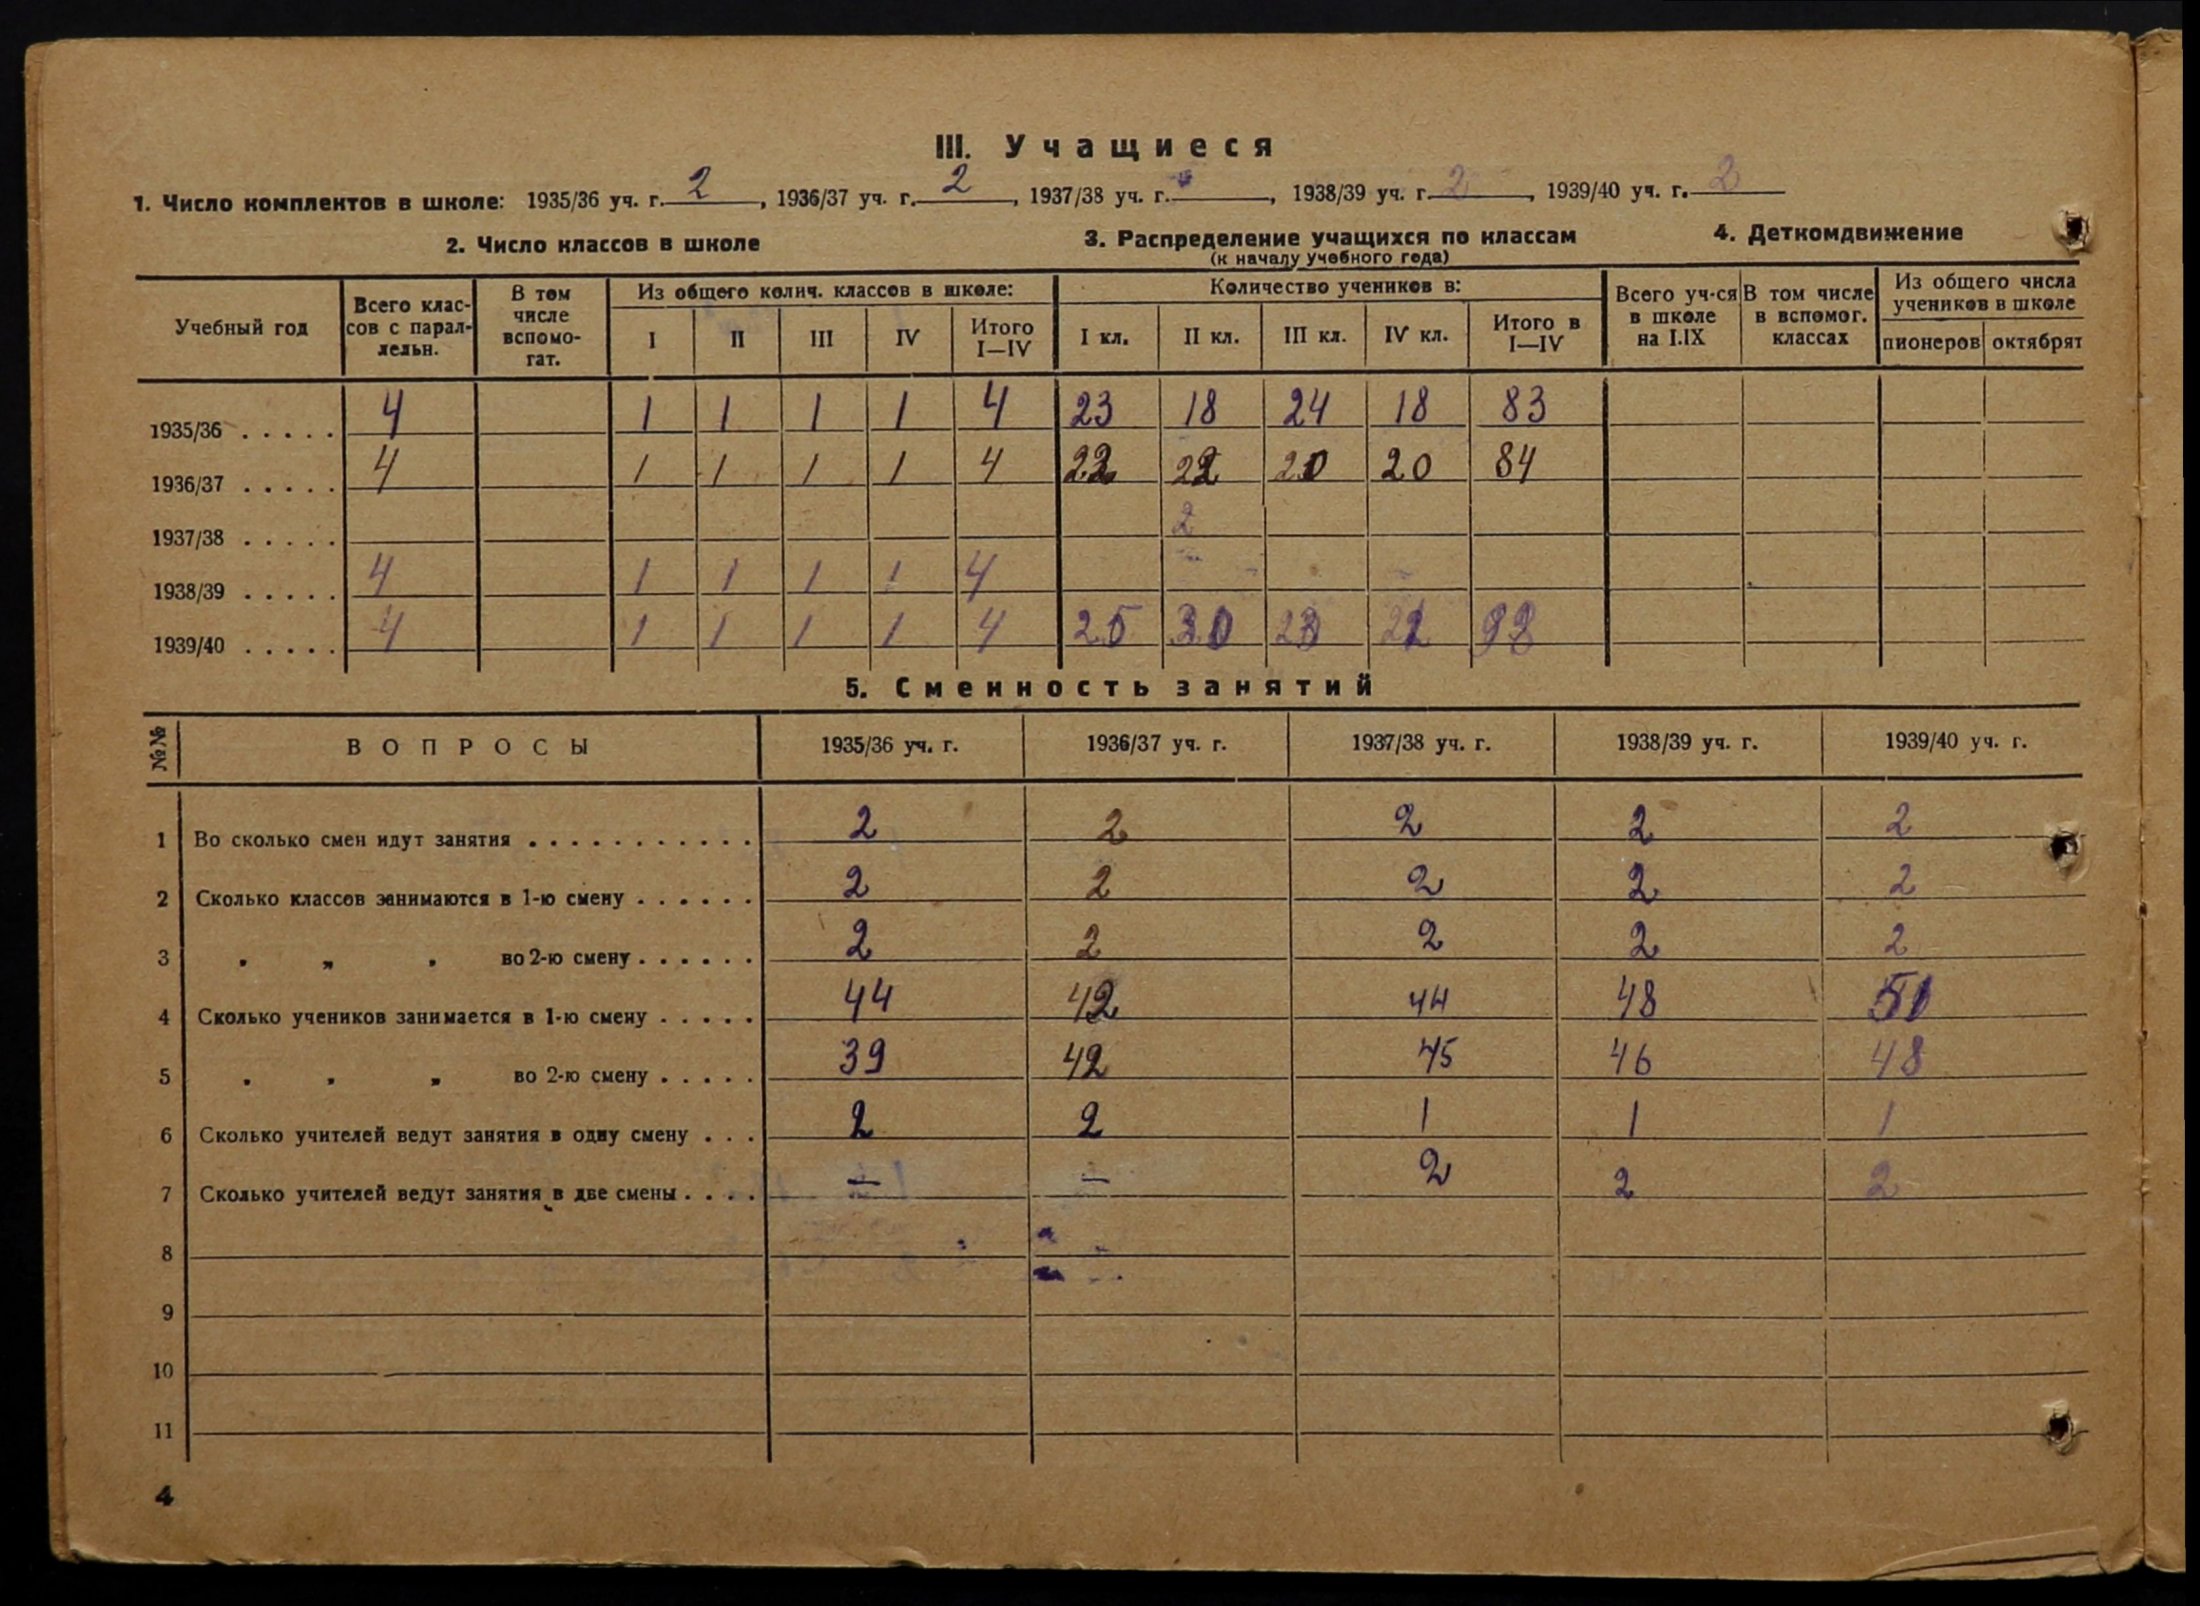 III. Учащиеся
1. Число комплектов в школе: 1935/36 уч. г. 2, 1936/37 уч. г. 2, 1937/38 уч. г. , 1938/39 уч. г. 2, 1939/40 уч. г. 2
2. Число классов в школе 3. Распределение учащихся по классам 4. Деткомдвижение
(к началу учебного года)
Учебный год Всего классов с параллельн. В том числе вспомогат. Из общего колич. классов в школе: Количество учеников в: Всего уч-ся в школе на I.IX В том числе в вспомог. классах Из общего числа учеников в школе
I II III IV Итого I—IV I кл. II кл. III кл. IV кл. Итого в I—IV пионеров октябрят
1935/36 . . . . . 4 1 1 1 1 4 23 18 24 18 83
1936/37 . . . . . 4 1 1 1 1 4 22 22 20 20 84
1937/38 . . . . . 2
1938/39 . . . . . 4 1 1 1 1 4
1939/40 . . . . . 4 1 1 1 1 4 25 30
5. Сменность занятий
№№ ВОПРОСЫ 1935/36 уч. г. 1936/37 уч. г. 1937/38 уч. г. 1938/39 уч. г. 1939/40 уч. г.
1 Во сколько смен идут занятия . . . . . . . . . . . 2 2 2 2 2
2 Сколько классов занимаются в 1-ю смену . . . . . . 2 2 2 2 2
3 " " " во 2-ю смену . . . . . . 2 2 2 2 2
4 Сколько учеников занимается в 1-ю смену . . . . . 44 42 44 48
5 " " " во 2-ю смену . . . . . 39 42 45 46 48
6 Сколько учителей ведут занятия в одну смену . . . 2 2 1 1 1
7 Сколько учителей ведут занятия в две смены . . . . — — 2 2 2
8
9
10
11
4